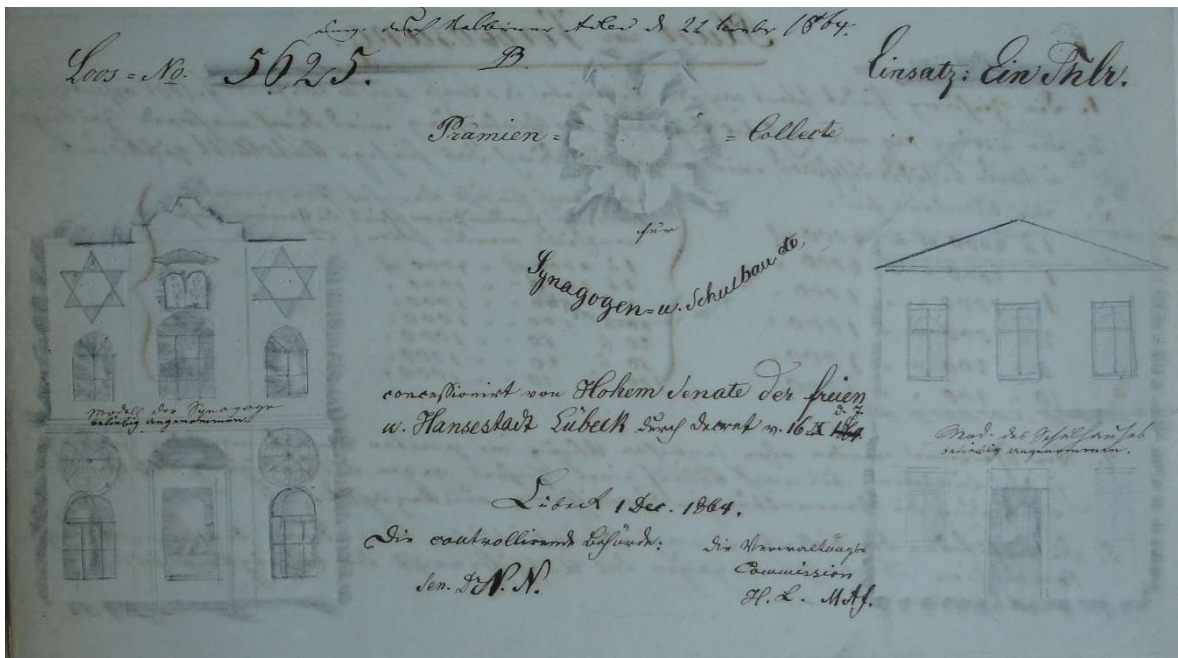 22 1864.
Loos-No. 5625. B. Einsatz: Ein Thlr.
Prämien= =Collecte
für
Synagogen=u. Schulbau
Modell der Synagoge
beliebig angenommen.
concessionirt von Hohem Senate der freien
u. Hansestadt Lübeck durch Decret v. 16
Mod. des Schulhauses
beliebig angenommen.
Lübeck 1 Dec. 1864.
Die controllirende Behörde: die Verwaltungs=
Commission
Sen. Dr N. N. H. L.